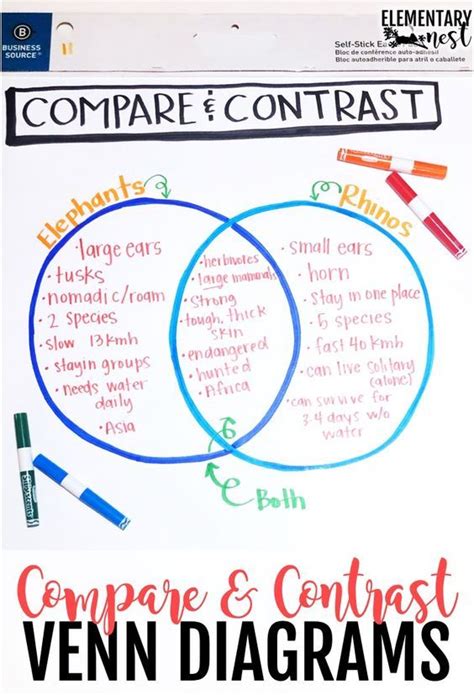 ELEMENTARY
nest
B
BUSINESS
SOURCE
Self-Stick
Bloc de conférence auto-adhésif
Bloc autoadherible para atril o caballete
COMPARE & CONTRAST
Elephants
Rhinos
large ears
• tusks
• nomadic/roam
• 2 species
• slow 13kmh
• stay in groups
• needs water
daily
• Asia
• herbivores
• large mammals
• strong
• tough, thick
skin
• endangered
• hunted
• Africa
small ears
• horn
• Stay in one place
• 5 species
• fast 40 kmh
• can live solitary
(alone)
• can survive for
3-4 days w/o
water
Both
Compare & Contrast
VENN DIAGRAMS